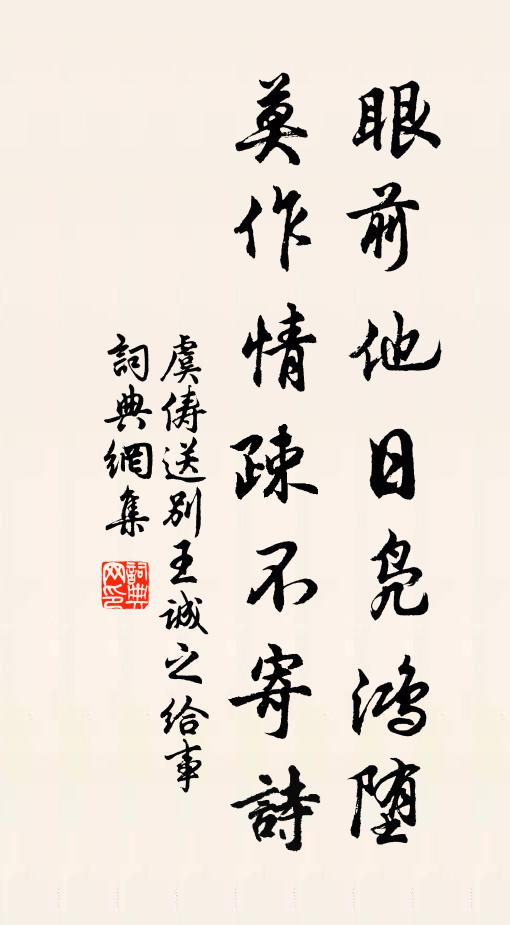 眼前他日凫鸿堕
莫作情疎不寄詩
虞俦送别王誠之給事
詞典網集
詞典网印